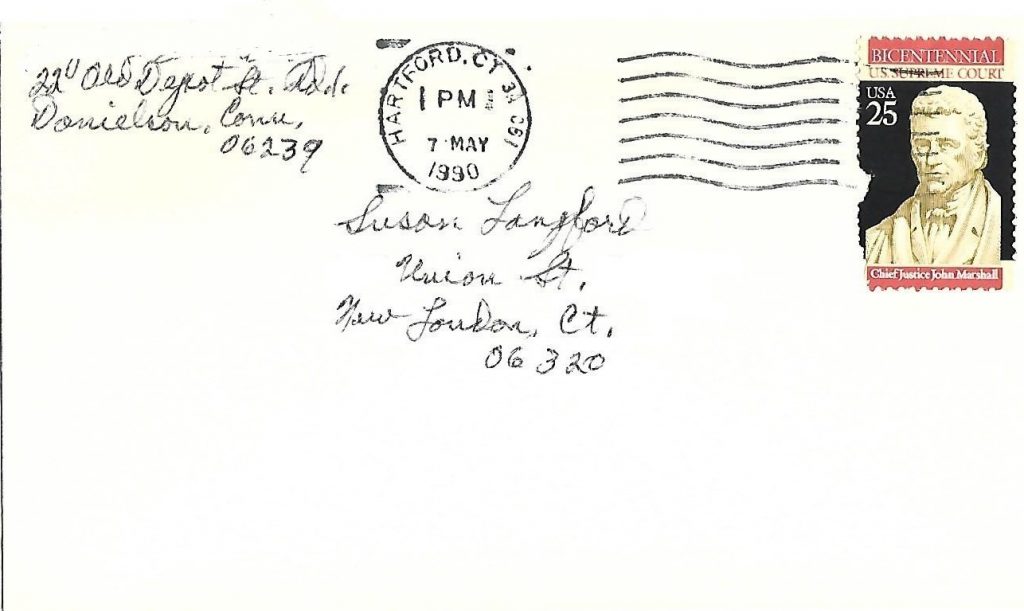 Old Depot St.
Danielson, Conn.
06239
HARTFORD, CT
PM
7 MAY
1990
BICENTENNIAL
U.S. SUPREME COURT
USA
25
Chief Justice John Marshall
Susan Langford
Union St.
New London, Ct.
06320